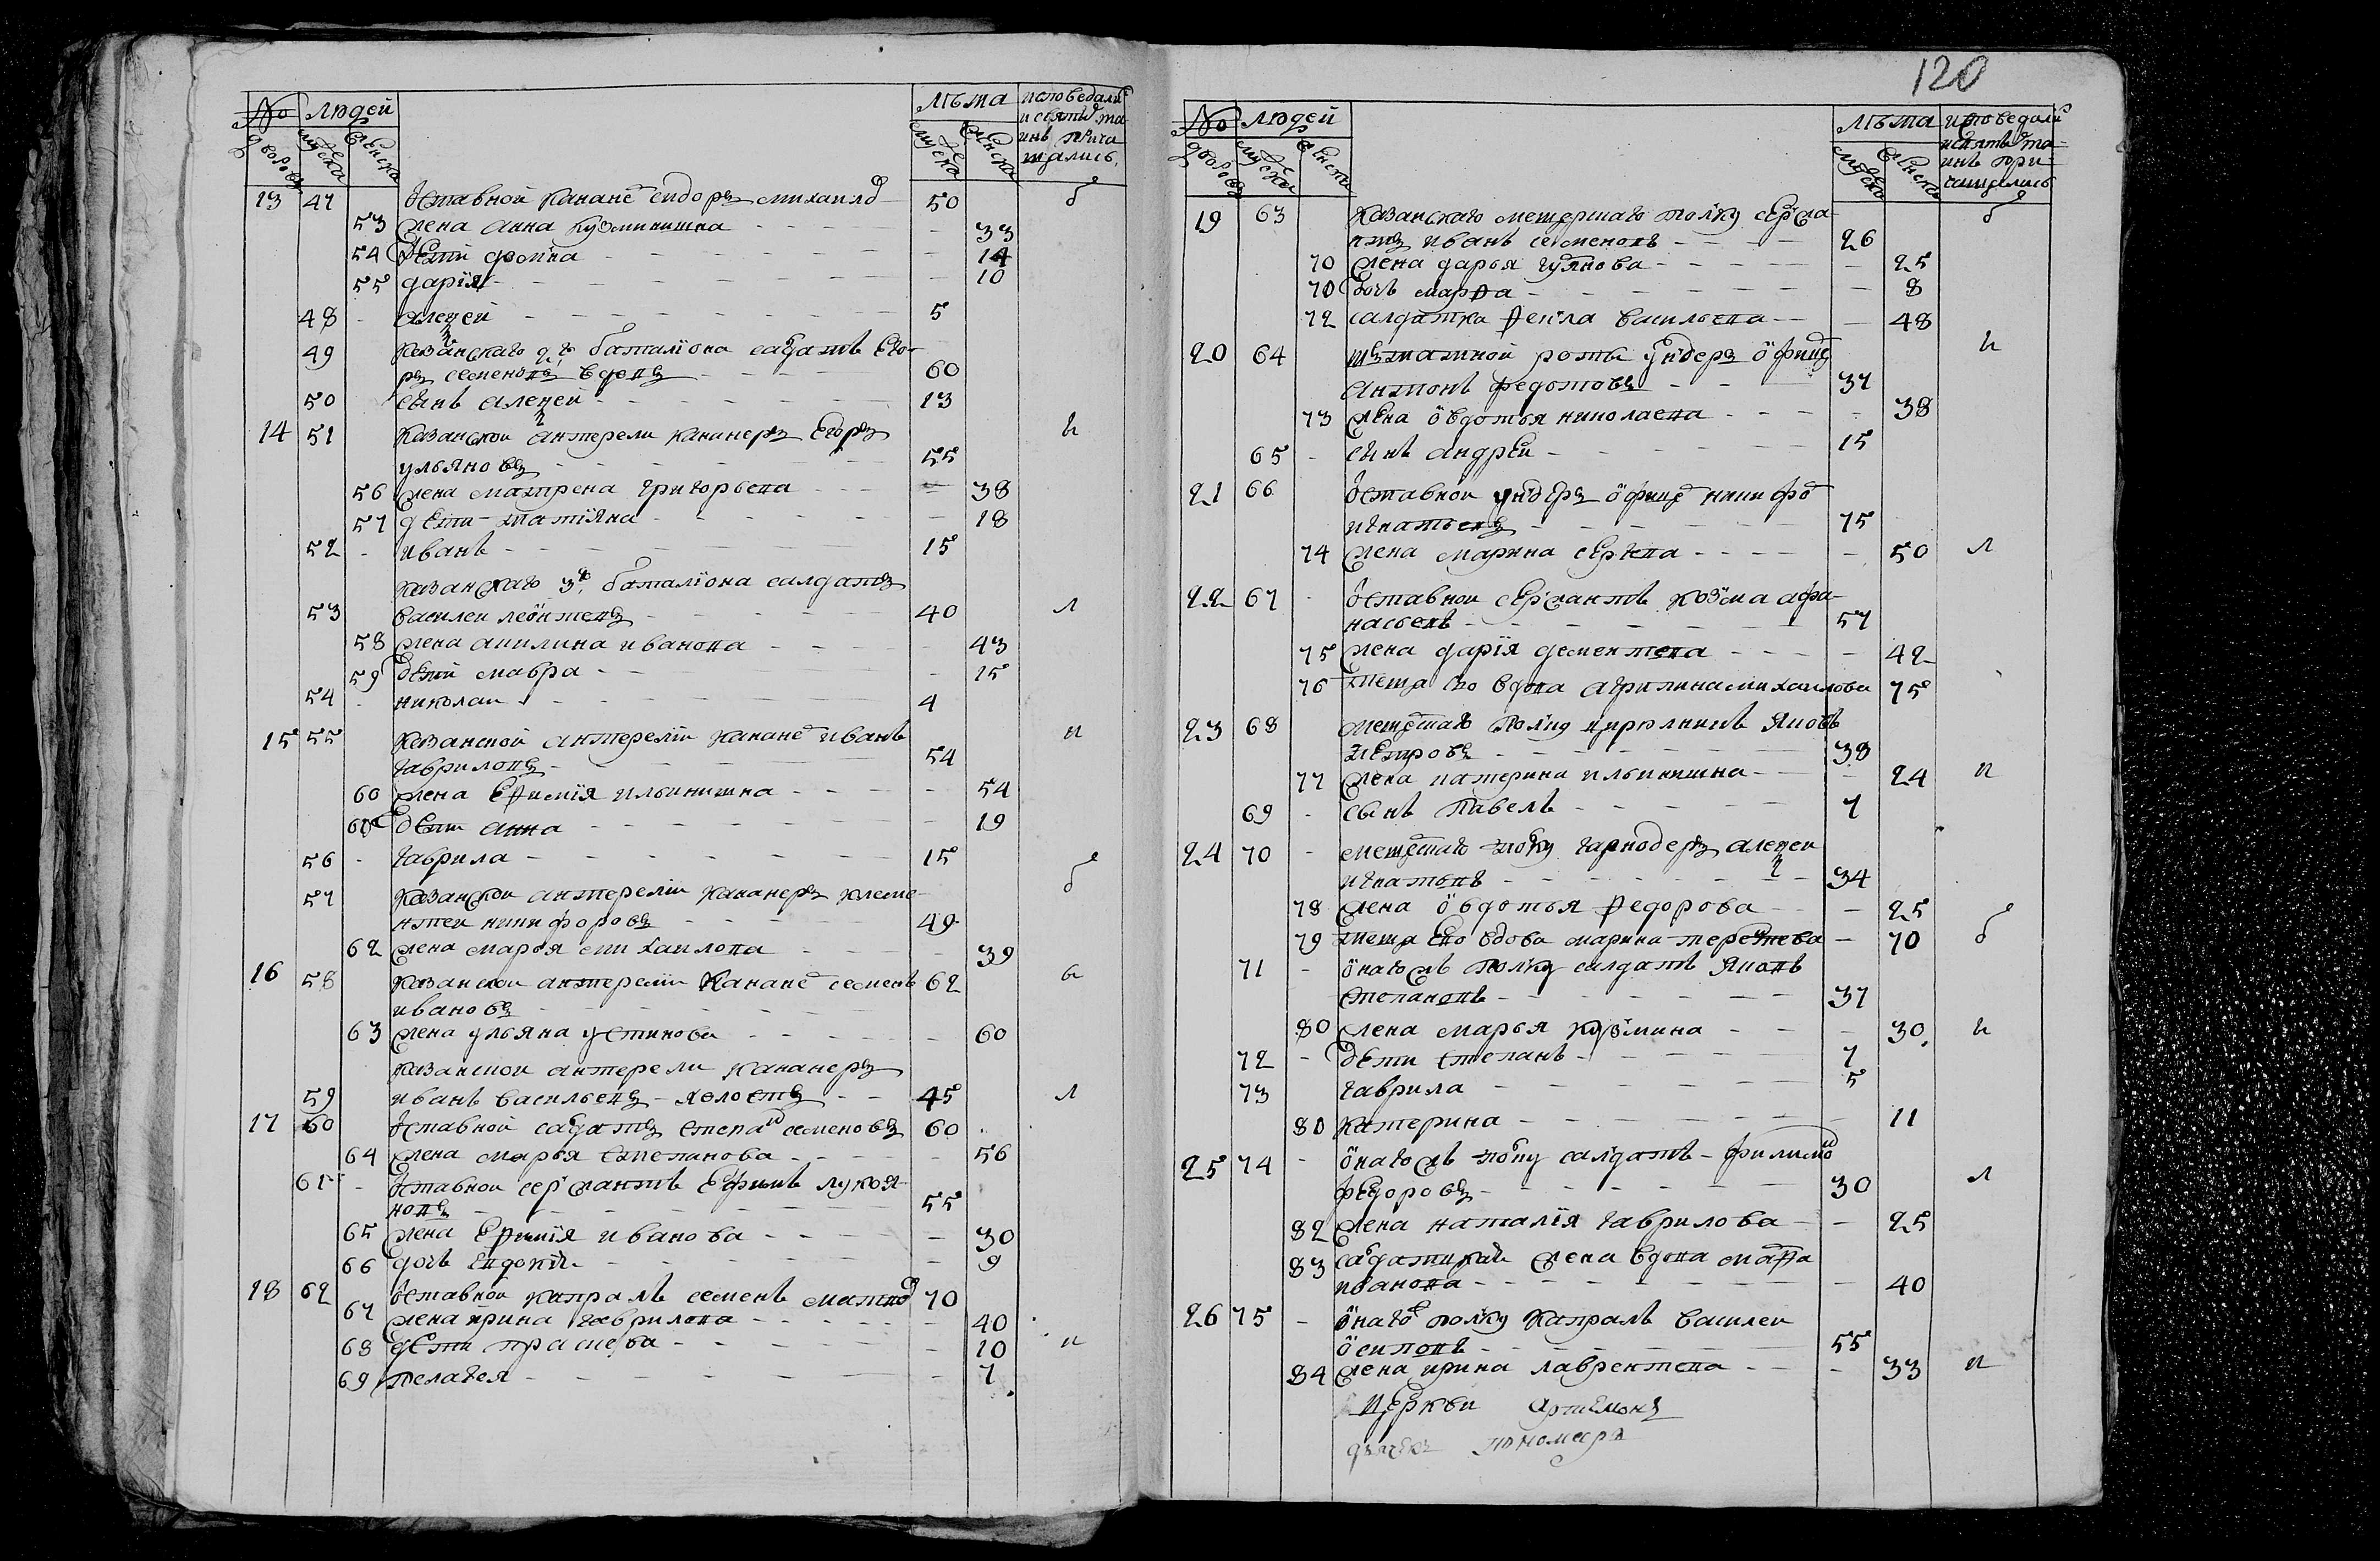 No людей лѣта исповедалис
дворовъ мужеска женска мужеска женска и святых таинъ прича щались
13 47 Ѿставной канане сидоръ михаило 50
53 жена анна кузминишна 33
54 дети фокина 14
55 дария 10
48 алеѯей 5
49 казанскаго 2го баталиона салдатъ Его
ръ семеновъ вдовъ 60
50 сынъ алеѯей 13
14 51 казанской антерели кананеръ Егоръ и
ульяновъ 55
56 жена матрена григорьева 38
57 дети татияна 18
52 иванъ 15
казанскаго 3го баталиона салдатъ
53 василеи леонтевъ 40 л
58 жена акилина иванова 43
59 дети мавра 15
54 николаи 4
15 55 казанской антерелии канане иванъ и
гавриловъ 54
60 жена Еѳимия ильинишна 54
61 дети анна 19
56 гаврила 15
57 казанской антерелии кананеръ клеме
нтеи никифоровъ 49
62 жена марья михаилова 39
16 58 казанскои антерелии канане семенъ 62
ивановъ
63 жена ульяна устинова 60
казанскои антерели кананеръ
59 иванъ васильевъ холостъ 45 л
17 60 Ѿставной салдатъ степанъ семеновъ 60
64 жена марья степанова 56
61 Ѿставнои сержантъ Ефимъ лукоя
новъ 55
65 жена Еѳимия иванова 30
66 дочь Евдокия 9
18 62 Ѿставной капралъ семенъ матве 70
67 жена ирина гаврилова 40
68 дети праскева 10 и
69 пелагея 7
120
No людей лѣта исповедалис
дворовъ мужеска женска мужеска женска и святых та инъ при чащались
19 63 казанскаго мещерскаго полку сержа
нтъ иванъ семеновъ 26
70 жена дарья лукянова 25
70 дочь марѳа 8
72 салдатка ѳекла васильева 48
20 64 штатной роты ундеръ офицеръ и
антонъ федотовъ 37
73 жена овдотья николаева 38
65 сынъ андреи 15
21 66 Ѿставнои ундеръ офице никифо
игнатьевъ 75
74 жена марина сергева 50 л
22 67 Ѿставнои сержантъ козма афа
насьевъ 57
75 жена дария дементева 42
76 теща Его вдова агрипина михаилова 75
23 68 мещерскаго полку цирюлникъ яковъ
петровъ 38
77 жена катерина ильинишна 24 и
69 сынъ павелъ 7
24 70 мещерскаго полку гарнодеръ алеѯеи
игнатьевъ 34
78 жена овдотья ѳедорова 25
79 теща Его вдова марина терентева 70
71 онаго жъ полку салдатъ яковъ
степановъ 37
80 жена марья кузмина 30 и
72 дети степанъ 7
73 гаврила 5
80 катерина 11
25 74 онаго жъ полку салдатъ филимонъ
федоровъ 30 л
82 жена наталия гаврилова 25
83 салдатская жена вдова марѳа
иванова 40
26 75 онаго полку капралъ василеи
осиповъ 55
84 жена ирина лаврентева 33 и
церкви Артемонъ
дьячекъ пономарь